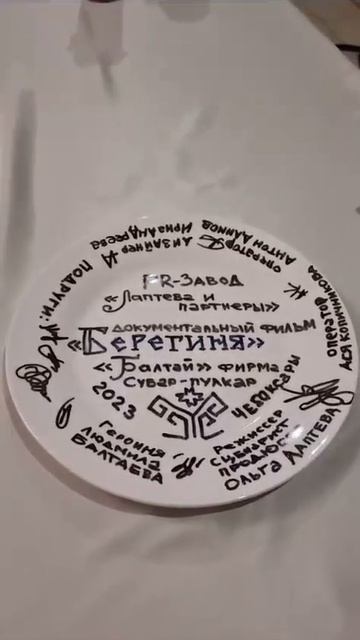 PR-ЗАВОД
«Лаптева и
партнеры»
документальный фильм
«Берегиня»
«Балтай» фирма
Сувар-пулкар
2023
Чебоксары
Героиня
Людмила
Балтаева
Режиссер
Сценарист
Продюс
Ольга Лаптева
Оператор
Ася Копишникова
Оператор
Антон Алинов
Дизайнер
Ирма Андреева
Подруги: